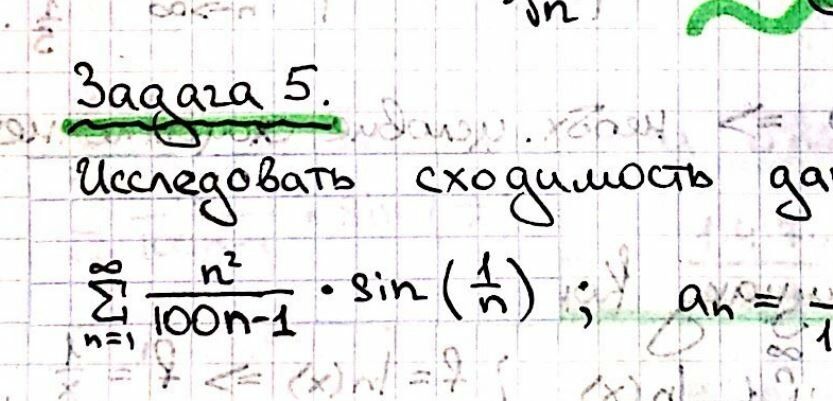 √n
Задача 5.
Исследовать сходимость
∑_{n=1}^{∞} n²/(100n-1) · sin(1/n) ; aₙ =